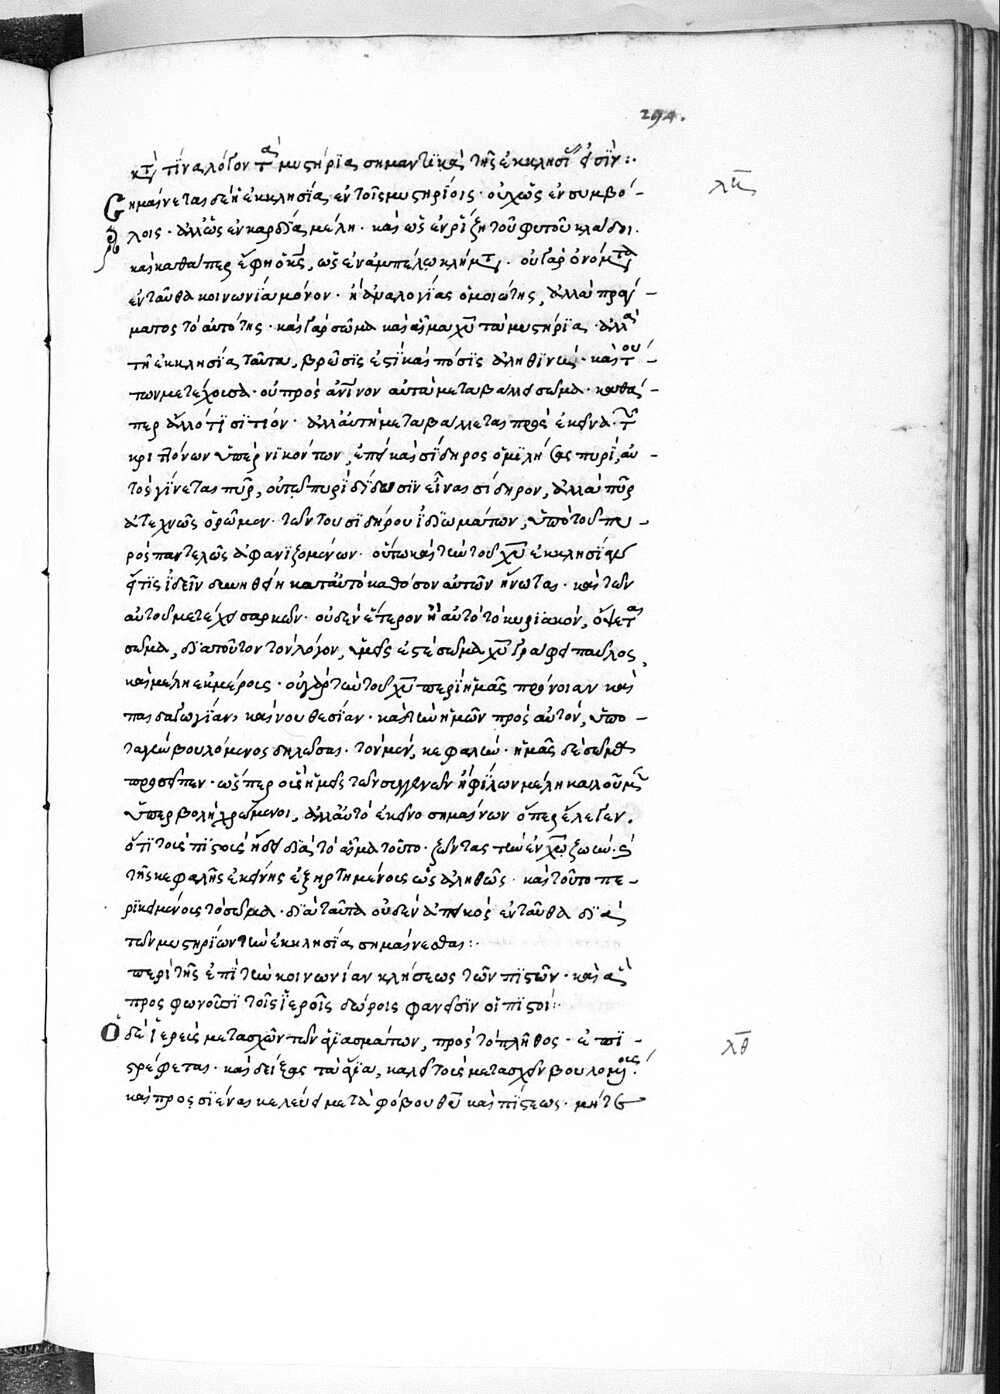 294.
κατὰ τίνα λόγον τὰ μυστήρια σημαντικὰ τῆς ἐκκλησίας εἰσίν:·
λη
Σημαίνεται δὲ ἡ ἐκκλησία ἐν τοῖς μυστηρίοις· οὐχ ὡς ἐν συμβό-
λοις· ἀλλ' ὡς ἐν καρδία μέλη· καὶ ὡς ἐν ρίζη τοῦ φυτοῦ κλάδοι·
καὶ καθάπερ ἔφη ὁ κς, ὡς ἐν ἀμπέλω κλήματα· οὐ γὰρ ὀνόματος
ἐνταῦθα κοινωνία μόνον· ἢ ἀναλογίας ὁμοιότης, ἀλλὰ πράγ-
ματος ταὐτότης· καὶ γὰρ σῶμα καὶ αἷμα χυ τὰ μυστήρια· ἀλλὰ
τῆ ἐκκλησία ταῦτα, βρῶσίς ἐστι καὶ πόσις ἀληθινή· καὶ τού-
των μετέχουσα· οὐ πρὸς ἀνινον αὐτὰ μεταβάλλει σῶμα· καθά-
περ ἄλλό τι σιτίον· ἀλλ' αὐτὴ μεταβάλλεται πρὸς ἐκεῖνα· τῶν
κρειττόνων ὑπερνικόντων, ἐπεὶ καὶ σίδηρος ὁμιλήσας πυρί, αὐ-
τὸς γίνεται πῦρ, οὐ τῶ πυρὶ δίδωσιν εἶναι σίδηρον, ἀλλὰ πῦρ
ἀτεχνῶς ὁρῶμεν· τῶν τοῦ σιδήρου ἰδιωμάτων, ὑπὸ τοῦ πυ-
ρὸς παντελῶς ἀφανιζομένων· οὕτω καὶ τὴν τοῦ χυ ἐκκλησίαν
εἴ τις ἰδεῖν δυνηθείη κατ' αὐτὸ καθόσον αὐτῶ ἥνωται· καὶ τῶν
αὐτοῦ μετέχει σαρκῶν· οὐδὲν ἕτερον ἢ αὐτὸ τὸ κυριακόν, ὄψεται
σῶμα, διὰ τοῦτον τὸν λόγον, ὑμεῖς ἐστὲ σῶμα χυ γράφει παῦλος,
καὶ μέλη ἐκ μέρους· οὐ γὰρ τὴν τοῦ χυ περὶ ἡμᾶς πρόνοιαν καὶ
παιδαγωγίαν, καὶ νουθεσίαν· καὶ τὴν ἡμῶν πρὸς αὐτόν, ὑπο-
ταγὴν βουλόμενος δηλῶσαι· τὸν μὲν, κεφαλὴν· ἡμᾶς δὲ σῶμα
προσεῖπεν· ὥσπερ οὖν ἡμεῖς τῶν συγγενῶν ἢ φίλων μέλη καλοῦμεν
ὑπερβολῆ χρώμενοι, ἀλλ' αὐτὸ ἐκεῖνο σημαίνων ὅπερ ἔλεγεν.
ὅτι τοὺς πιστοὺς ἤδη διὰ τὸ αἷμα τοῦτο· ζῶντας τὴν ἐν χω ζωὴν· καὶ
τῆς κεφαλῆς ἐκείνης ἐξηρτημένους ὡς ἀληθῶς· καὶ τοῦτο πε-
ρικειμένους τὸ σῶμα· διὰ ταῦτα οὐδὲν ἀπεικὸς ἐνταῦθα διὰ
τῶν μυστηρίων τὴν ἐκκλησίαν σημαίνεσθαι:·
περὶ τῆς ἐπὶ τὴν κοινωνίαν κλήσεως τῶν πιστῶν· καὶ ἃ
προσφωνοῦσι τοῖς ἱεροῖς δώροις φανεῖσιν οἱ πιστοί:·
λθ
Ὁ δὲ ἱερεὺς μετασχὼν τῶν ἁγιασμάτων, πρὸς τὸ πλῆθος· ἐπι-
στρέφεται· καὶ δείξας τὰ ἅγια, καλεῖ τοὺς μετασχεῖν βουλομένους·
καὶ προσιέναι κελεύει μετὰ φόβου θυ καὶ πίστεως· μήτε